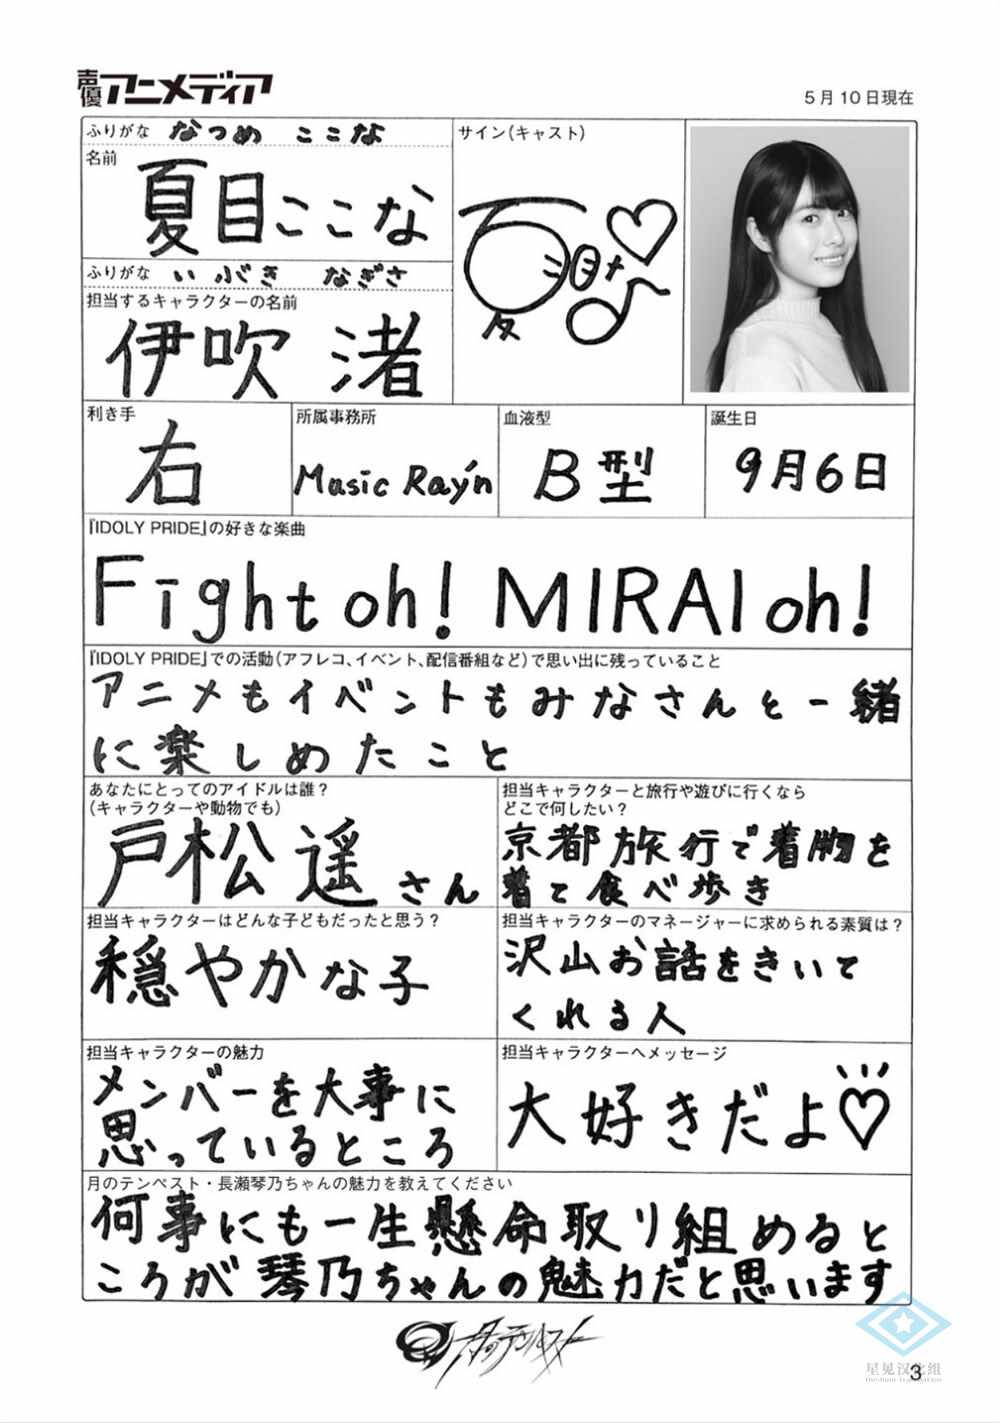 声優アニメディア
5月10日現在
ふりがな なつめ ここな
名前
夏目ここな
サイン(キャスト)
ふりがな いぶき なぎさ
担当するキャラクターの名前
伊吹 渚
利き手
右
所属事務所
Music Ray'n
血液型
B型
誕生日
9月6日
『IDOLY PRIDE』の好きな楽曲
Fight oh! MIRAI oh!
『IDOLY PRIDE』での活動(アフレコ、イベント、配信番組など)で思い出に残っていること
アニメもイベントもみなさんと一緒
に楽しめたこと
あなたにとってのアイドルは誰?
(キャラクターや動物でも)
戸松遥さん
担当キャラクターと旅行や遊びに行くなら
どこで何したい?
京都旅行で着物を
着て食べ歩き
担当キャラクターはどんな子どもだったと思う?
穏やかな子
担当キャラクターのマネージャーに求められる素質は?
沢山お話をきいて
くれる人
担当キャラクターの魅力
メンバーを大事に
思っているところ
担当キャラクターへメッセージ
大好きだよ♡
月のテンペスト・長瀬琴乃ちゃんの魅力を教えてください
何事にも一生懸命取り組めると
ころが琴乃ちゃんの魅力だと思います
月のテンペスト
星见汉化组
3